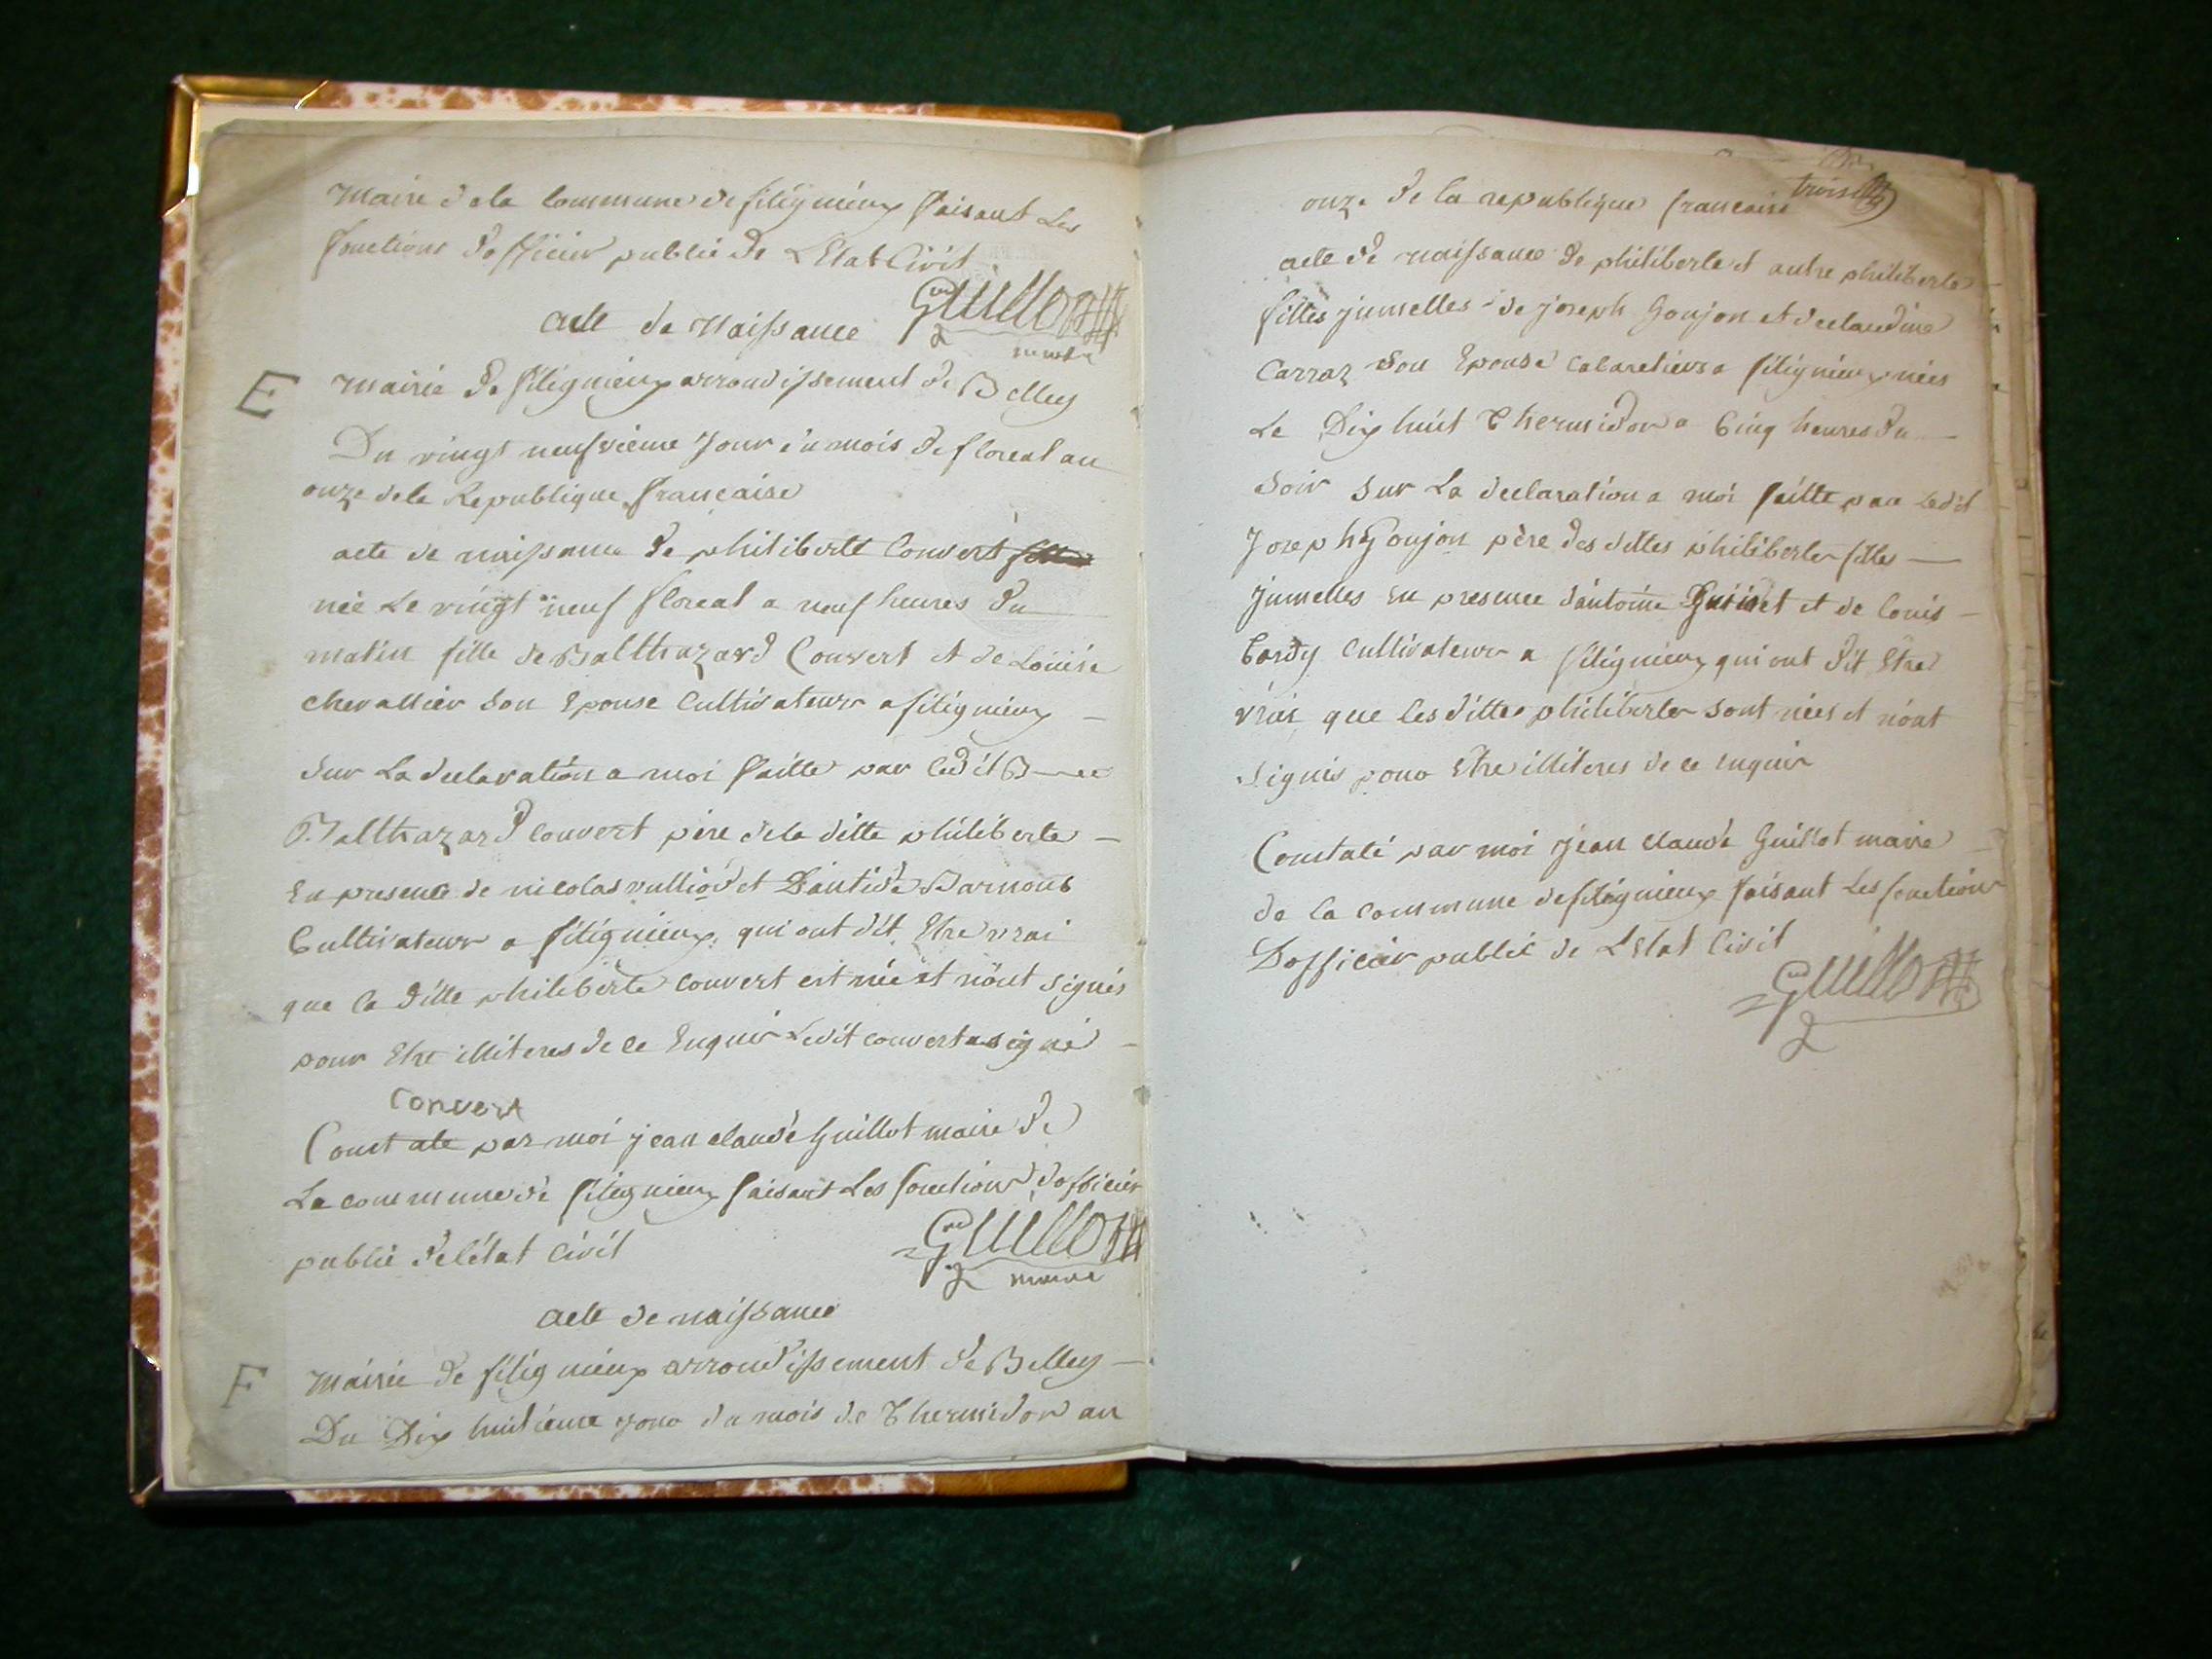 Maire de la Commune de fitignieux faisant Les
fonctions d'officier public de L'Etat Civil
Guillot
maire
acte de Naissance
E
Mairie de fitignieux arrondissement de Belley
Du vingt neufvieme Jour du mois de floreal an
onze dela Republique francaise
acte de naissance de philiberte Convert fille
née Le vingt neuf floreal a neuf heures du
matin fille de Balthazard Convert et de Louise
chevallier son Epouse Cultivateurs a fitignieux
sur La declaration a moi faitte par ledit B
Balthazard Convert père dela ditte philiberte
En presence de nicolas vulliod et Dantide Barnoud
Cultivateurs a fitignieux qui ont dit Etre vrai
que la ditte philiberte Convert est née et n'ont signés
pour Etre illiteres de ce Enquir Ledit convert a signé
Convert
Constaté par moi jean claude Guillot maire de
La commune de fitignieux faisant Les fonctions d'officier
public de létat Civil
Guillot
maire
acte de naissance
F
Mairie de fitignieux arrondissement de Belley
Du Dix huitieme jour du mois de Thermidor an
trois
onze de la republique francaise
acte de naissance de philiberte et autre philiberte
filles jumelles de joseph Goujon et de claudine
Carraz son Epouse Cabaretiers a fitignieux nées
Le Dix huit Thermidor a Cinq heures du
soir sur La declaration a moi faitte par Ledit
Joseph Goujon père des dittes philiberte filles
jumelles En presence d'antoine et de Louis
Tardy Cultivateurs a fitignieux qui ont dit Etre
vrai que les dittes philiberte sont nées et n'ont
signés pour Etre illiteres de ce enquir
Constaté par moi jean claude Guillot maire
de la commune de fitignieux faisant Les fonctions
D'officier public de L'Etat Civil
Guillot